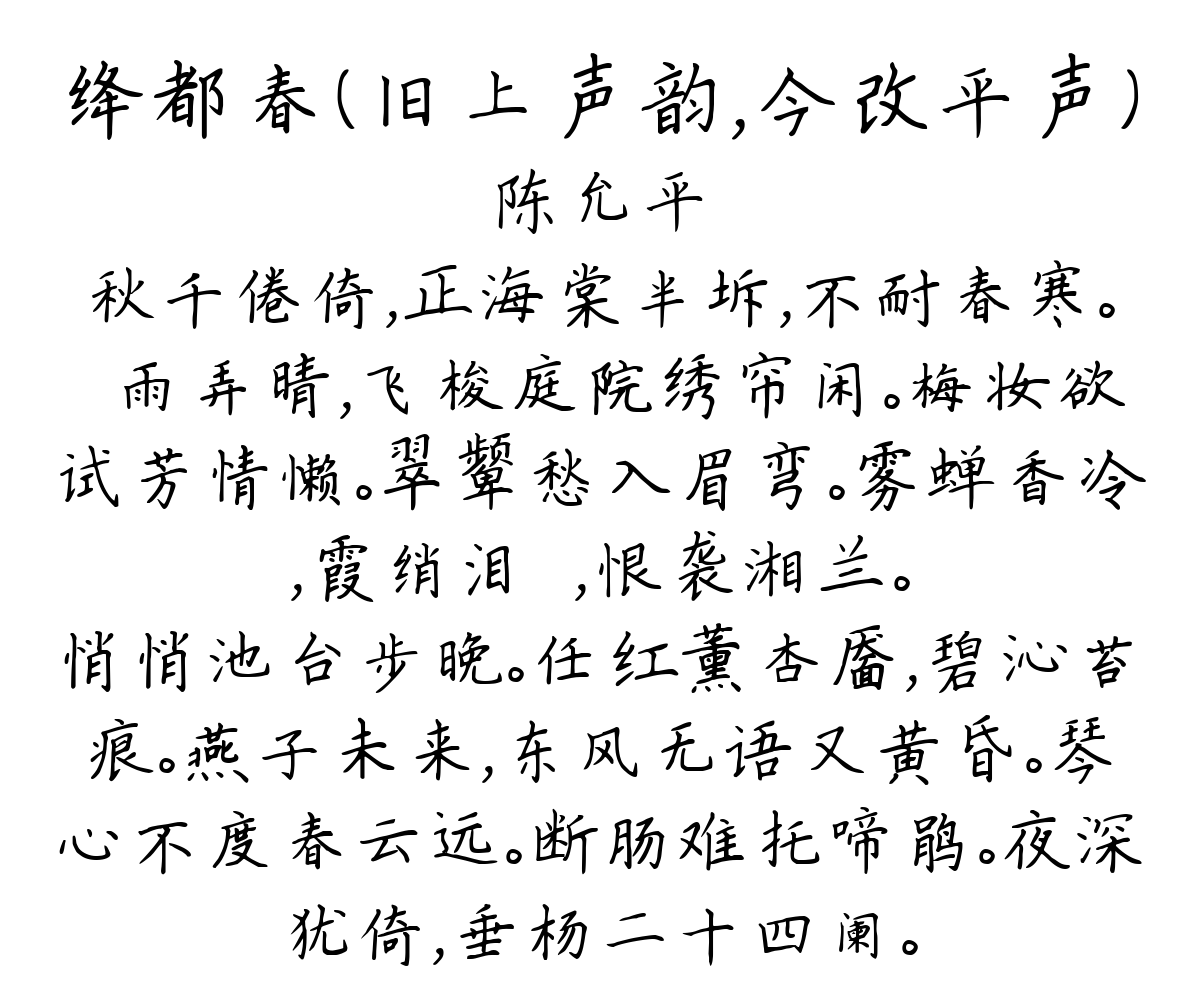 绛都春(旧上声韵,今改平声)
陈允平
秋千倦倚,正海棠半坼,不耐春寒。
雨弄晴,飞梭庭院绣帘闲。梅妆欲
试芳情懒。翠颦愁入眉弯。雾蝉香冷
,霞绡泪 ,恨袭湘兰。
悄悄池台步晚。任红薰杏靥,碧沁苔
痕。燕子未来,东风无语又黄昏。琴
心不度春云远。断肠难托啼鹃。夜深
犹倚,垂杨二十四阑。